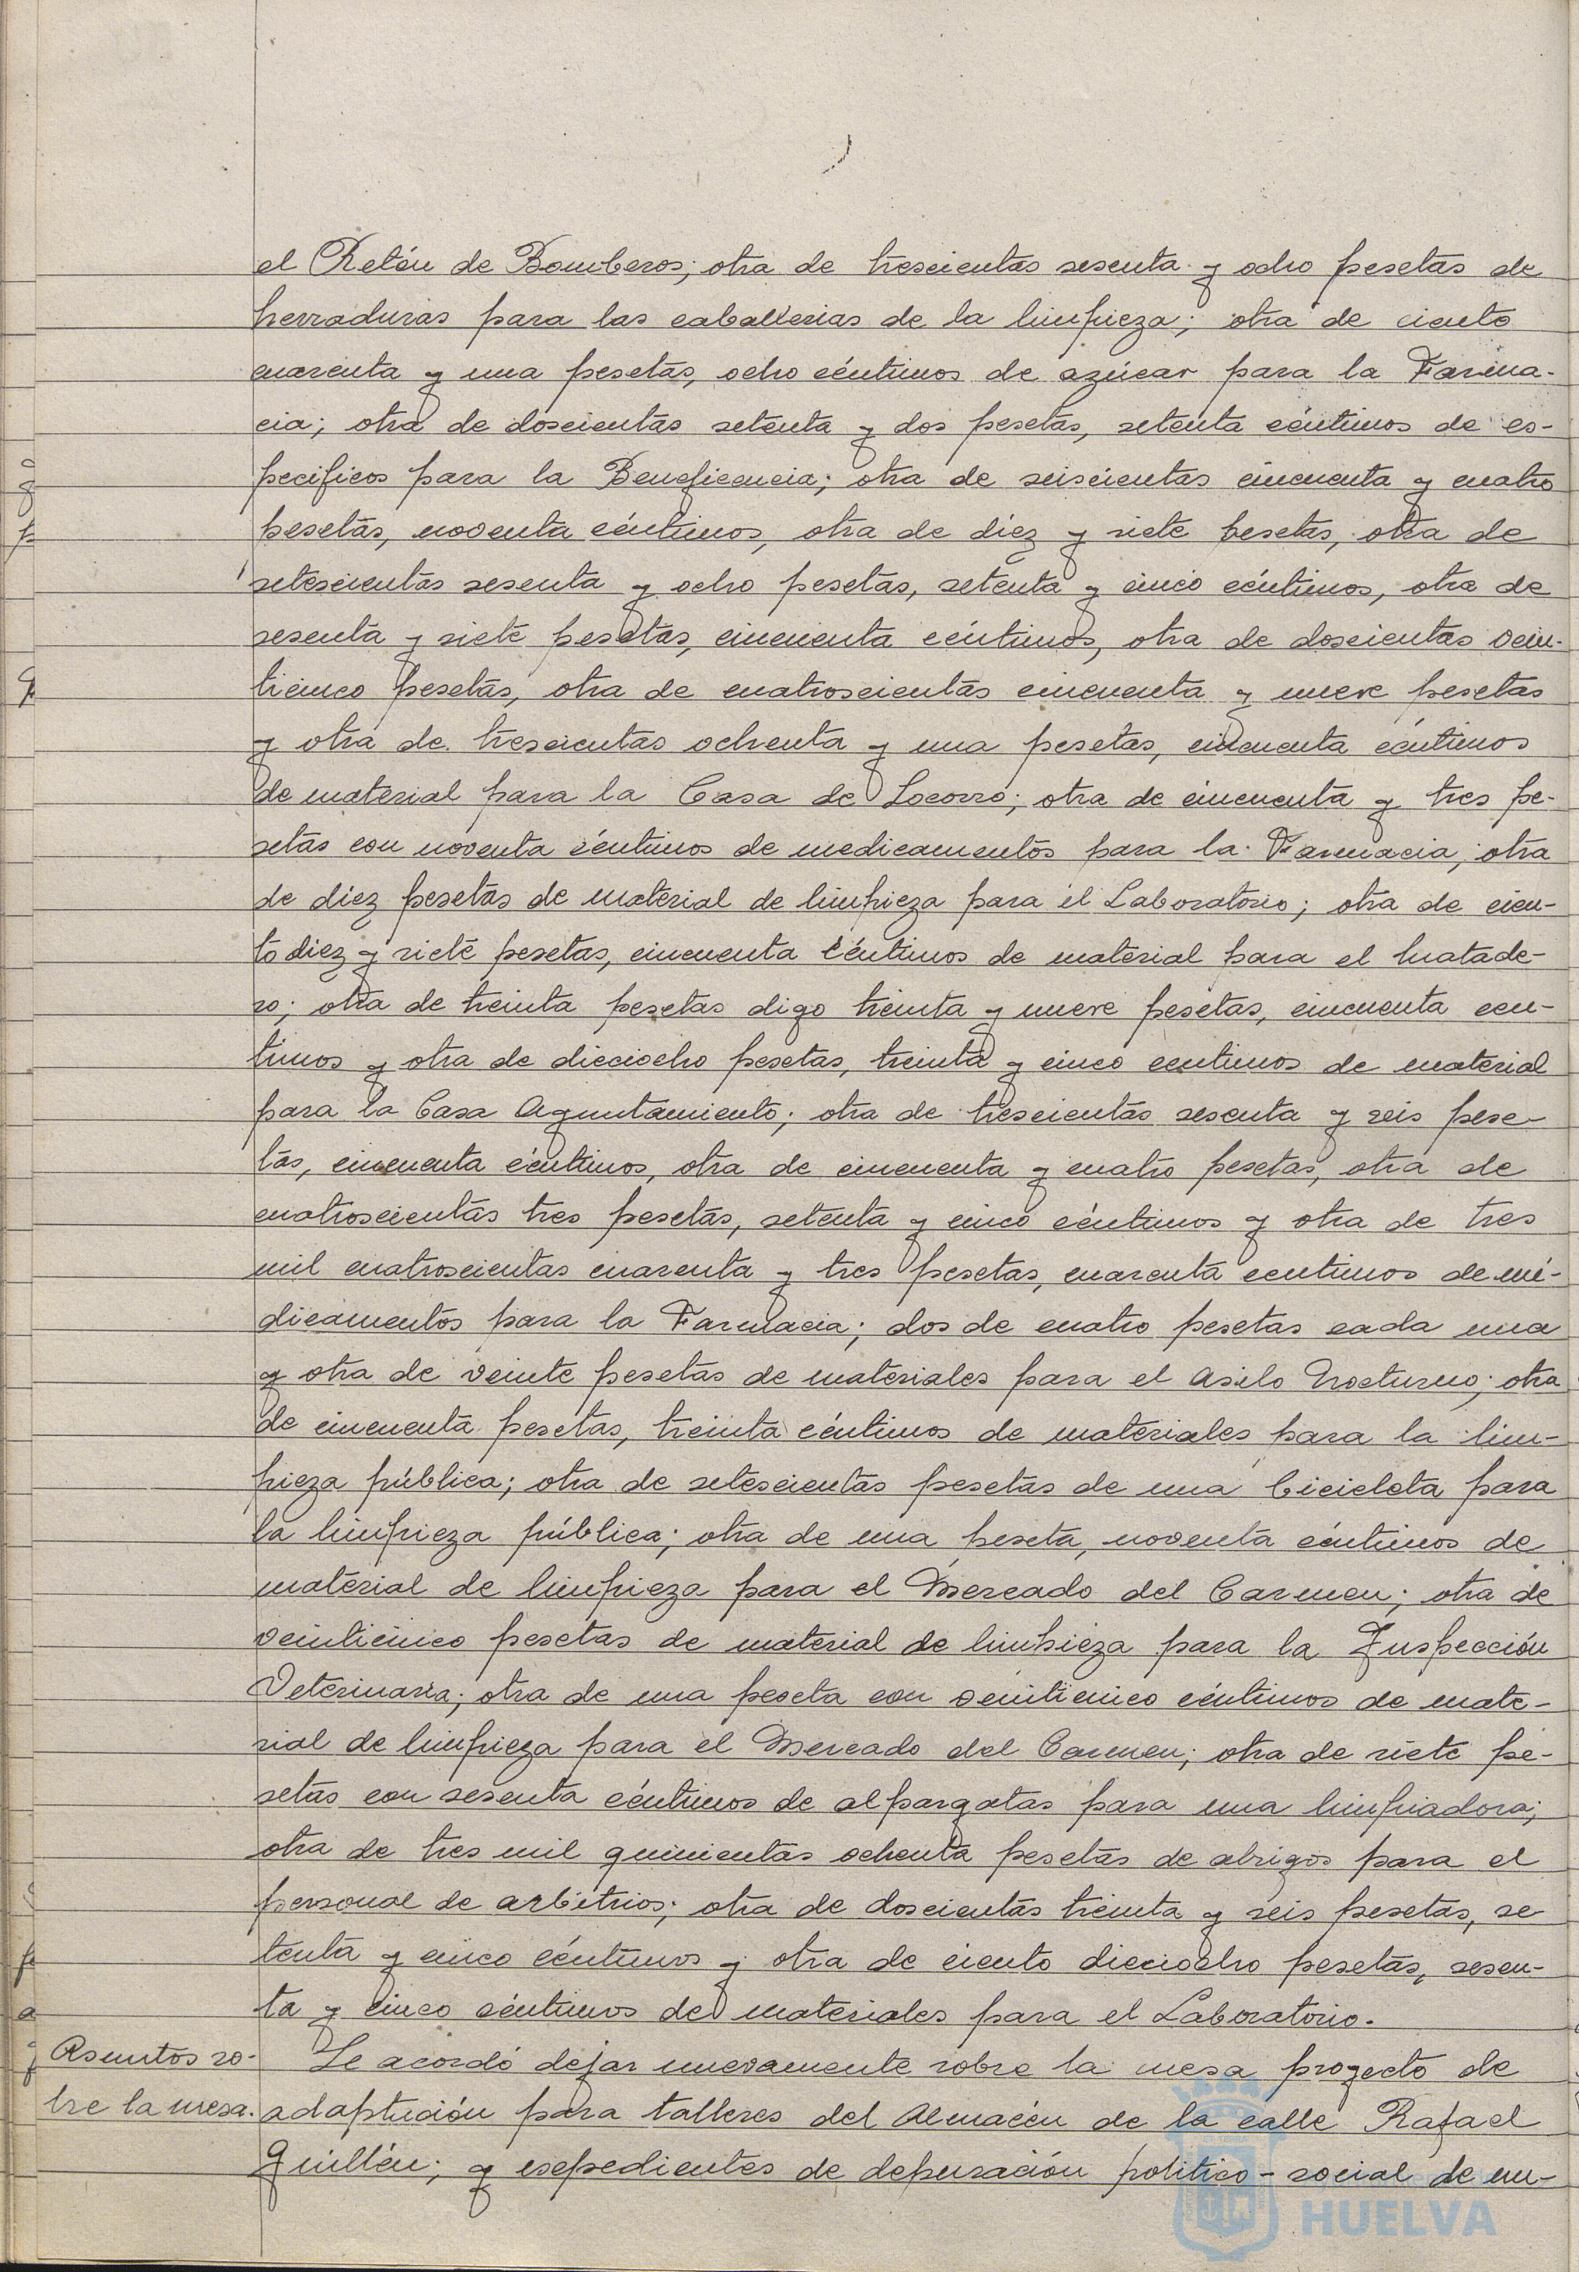 el Retén de Bomberos; otra de trescientas sesenta y ocho pesetas de
herraduras para las caballerias de la limpieza; otra de ciento
cuarenta y una pesetas, ocho céntimos de azúcar para la Farma-
cia; otra de doscientas setenta y dos pesetas, setenta céntimos de es-
pecificos para la Beneficencia; otra de seiscientas cincuenta y cuatro
pesetas, noventa céntimos, otra de diez y siete pesetas, otra de
setescientas sesenta y ocho pesetas, setenta y cinco céntimos, otra de
sesenta y siete pesetas, cincuenta céntimos, otra de doscientas vein-
ticinco pesetas, otra de cuatroscientas cincuenta y nueve pesetas
y otra de trescientas ochenta y una pesetas, cincuenta céntimos
de material para la Casa de Socorro; otra de cincuenta y tres pe-
setas con noventa céntimos de medicamentos para la Farmacia; otra
de diez pesetas de material de limpieza para el Laboratorio; otra de cien-
to diez y siete pesetas, cincuenta céntimos de material para el matade-
ro; otra de treinta pesetas digo treinta y nueve pesetas, cincuenta cen-
timos y otra de dieciocho pesetas, treinta y cinco centimos de material
para la Casa Ayuntamiento; otra de trescientas sesenta y seis pese-
tas, cincuenta céntimos, otra de cincuenta y cuatro pesetas, otra de
cuatroscientas tres pesetas, setenta y cinco céntimos y otra de tres
mil cuatroscientas cuarenta y tres pesetas, cuarenta centimos de me-
dicamentos para la Farmacia; dos de cuatro pesetas cada una
y otra de veinte pesetas de materiales para el Asilo Nocturno; otra
de cincuenta pesetas, treinta céntimos de materiales para la lim-
pieza pública; otra de setescientas pesetas de una bicicleta para
la limpieza pública; otra de una peseta, noventa céntimos de
material de limpieza para el Mercado del Carmen; otra de
veinticinco pesetas de material de limpieza para la Inspección
Veterinaria; otra de una peseta con veinticinco céntimos de mate-
rial de limpieza para el Mercado del Carmen; otra de siete pe-
setas con sesenta céntimos de alpargatas para una limpiadora;
otra de tres mil quinientas ochenta pesetas de abrigos para el
personal de arbitrios; otra de doscientas treinta y seis pesetas, se
tenta y cinco céntimos y otra de ciento dieciocho pesetas, sesen-
ta y cinco céntimos de materiales para el Laboratorio.
Asuntos so-
bre la mesa.
Se acordó dejar nuevamente sobre la mesa proyecto de
adaptación para talleres del Almacén de la calle Rafael
Guillén; y expedientes de depuración politico-social de em-
HUELVA